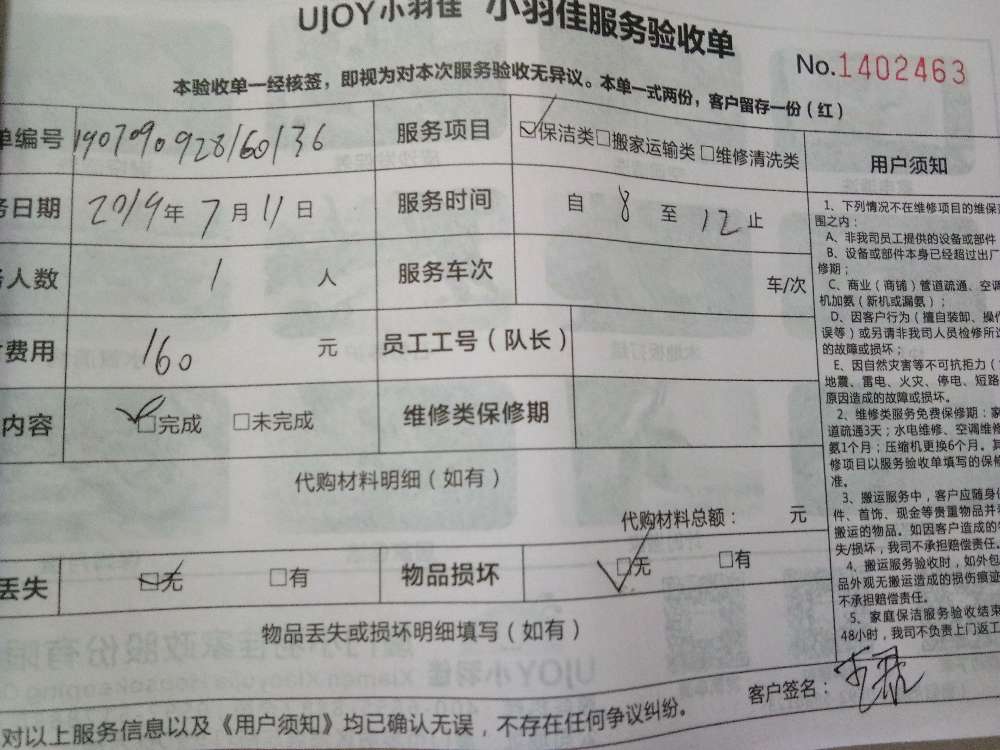 UJOY小羽佳 小羽佳服务验收单
No.1402463
本验收单一经核签，即视为对本次服务验收无异议。本单一式两份，客户留存一份（红）
单编号 1907090928160136 服务项目 保洁类 搬家运输类 维修清洗类 用户须知
务日期 2019年7月11日 服务时间 自 8 至 12 止
务人数 1 人 服务车次 车/次
费用 160 元 员工工号（队长）
内容 完成 未完成 维修类保修期
代购材料明细（如有）
代购材料总额： 元
丢失 无 有 物品损坏 无 有
物品丢失或损坏明细填写（如有）
客户签名：
对以上服务信息以及《用户须知》均已确认无误，不存在任何争议纠纷。
1、下列情况不在维修项目的维保范
围之内：
A、非我司员工提供的设备或部件
B、设备或部件本身已经超过出厂
修期；
C、商业（商铺）管道疏通、空调
机加氨（新机或漏氨）；
D、因客户行为（擅自装卸、操作
误等）或另请非我司人员检修所造
的故障或损坏；
E、因自然灾害等不可抗拒力（
地震、雷电、火灾、停电、短路
原因造成的故障或损坏。
2、维修类服务免费保修期：家
道疏通3天；水电维修、空调维修
氨1个月；压缩机更换6个月。其
修项目以服务验收单填写的保修
准。
3、搬运服务中，客户应随身
件、首饰、现金等贵重物品并
搬运的物品。如因客户造成的
失/损坏，我司不承担赔偿责任。
4、搬运服务验收时，如外包
品外观无搬运造成的损伤痕迹
不承担赔偿责任。
5、家庭保洁服务验收结束
48小时，我司不负责上门返工